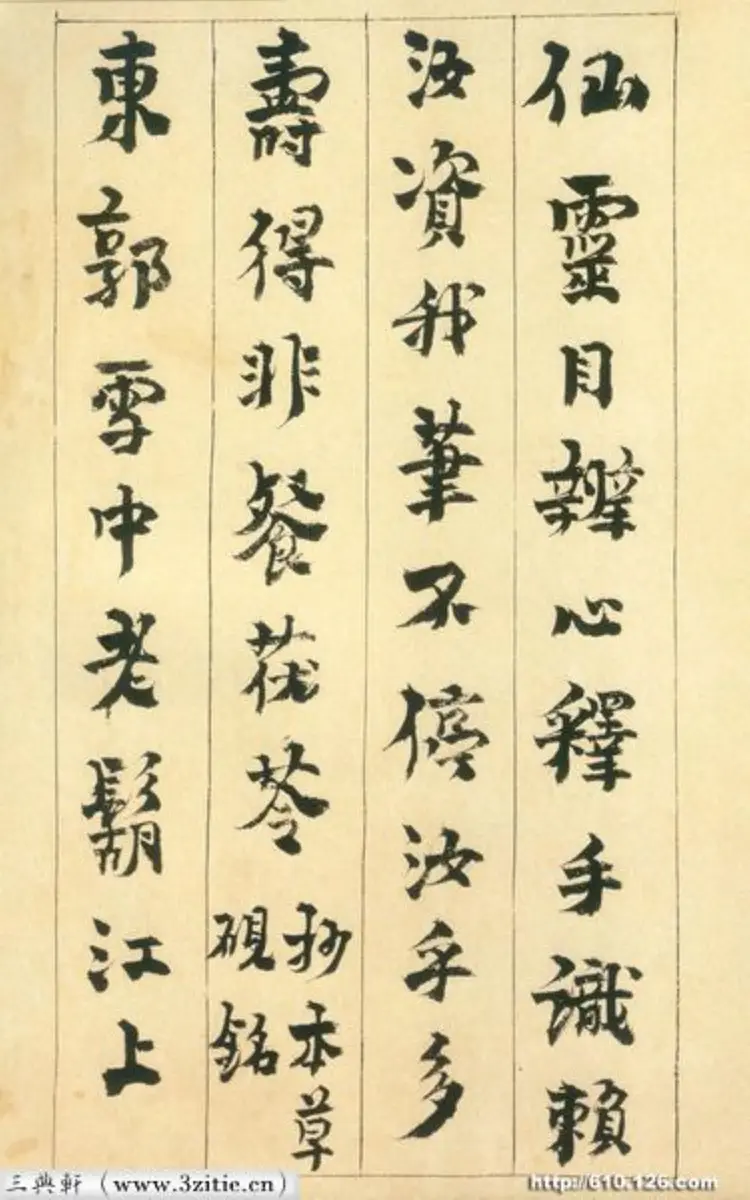 仙靈目辨心釋手識賴
汝資我筆不停汝乎多
壽得非餐茯苓
抄本草
硯銘
東郭雪中老鬍江上
三典軒（www.3zitie.cn）
http://610.126.com